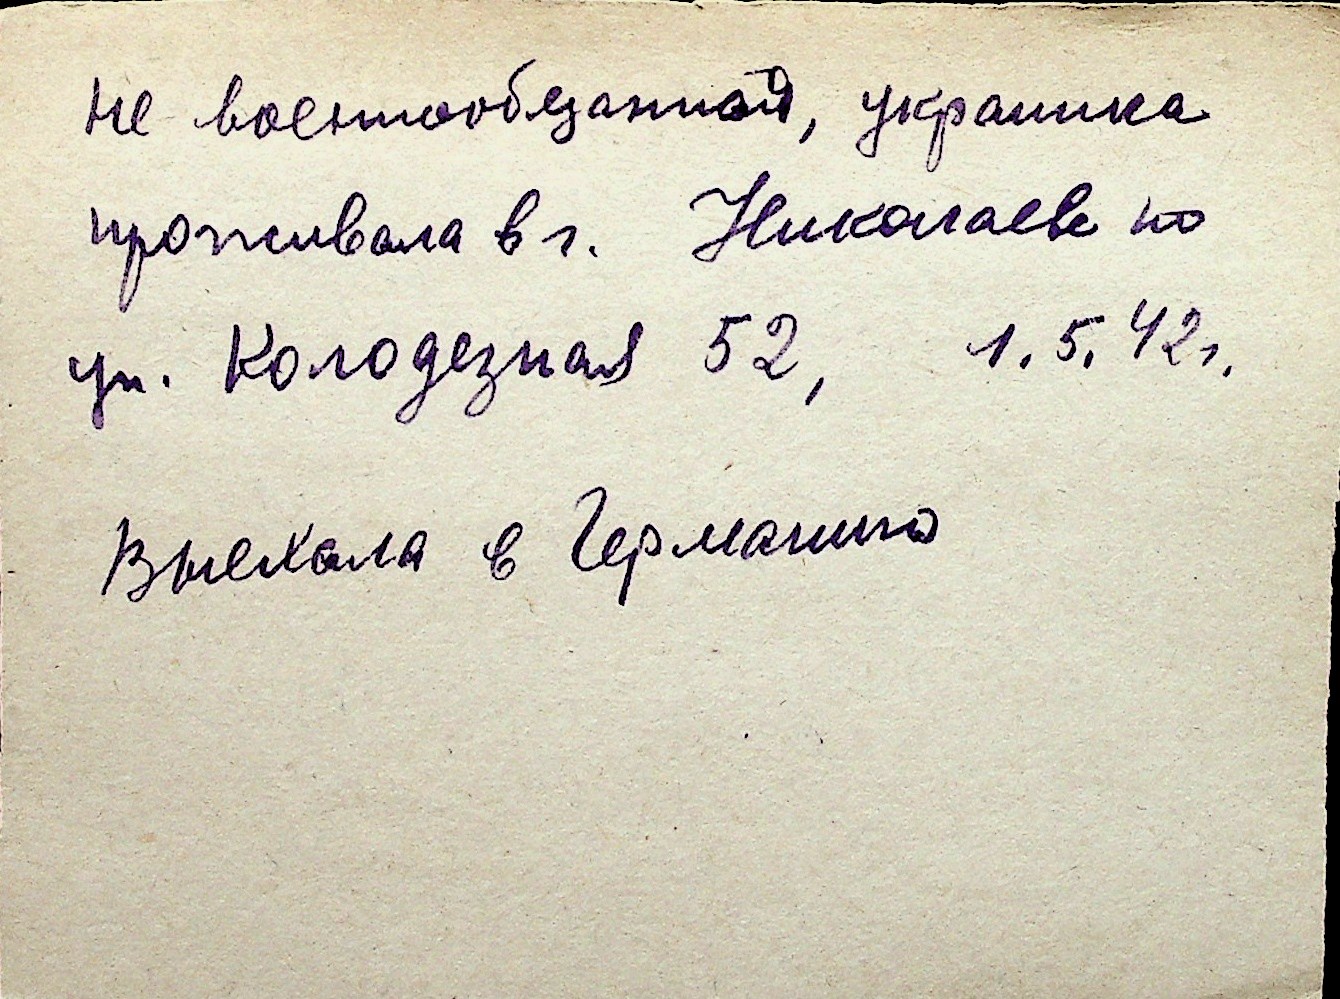 не военнообязанной, украинка
проживала в г. Николаеве по
ул. Колодезная 52, 1.5.42г.
Выехала в Германию